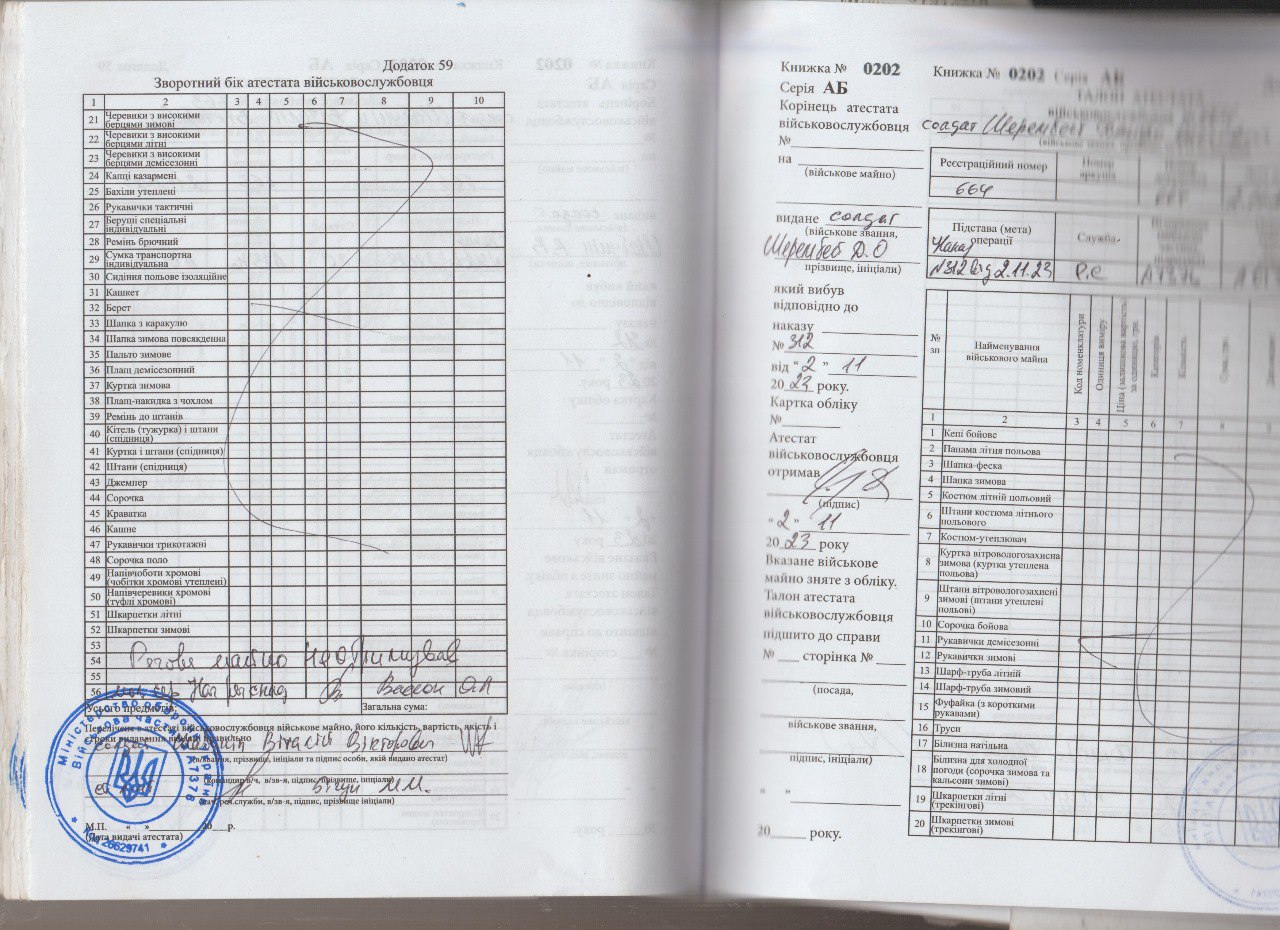 Додаток 59
Зворотний бік атестата військовослужбовця
1 2 3 4 5 6 7 8 9 10
21 Черевики з високими берцями зимові
22 Черевики з високими берцями літні
23 Черевики з високими берцями демісезонні
24 Капці казармені
25 Бахіли утеплені
26 Рукавички тактичні
27 Беруші спеціальні індивідуальні
28 Ремінь брючний
29 Сумка транспортна індивідуальна
30 Сидіння польове ізоляційне
31 Кашкет
32 Берет
33 Шапка з каракулю
34 Шапка зимова повсякденна
35 Пальто зимове
36 Плащ демісезонний
37 Куртка зимова
38 Плащ-накидка з чохлом
39 Ремінь до штанів
40 Кітель (тужурка) і штани (спідниця)
41 Куртка і штани (спідниця)
42 Штани (спідниця)
43 Джемпер
44 Сорочка
45 Краватка
46 Кашне
47 Рукавички трикотажні
48 Сорочка поло
49 Напівчоботи хромові (чобітки хромові утеплені)
50 Напівчеревики хромові (туфлі хромові)
51 Шкарпетки літні
52 Шкарпетки зимові
53
54 Речове майно не отримував
55
56
Усього предметів Загальна сума:
Перелічене в атестаті військовослужбовця військове майно, його кількість, вартість, якість і
строки видавання вказані правильно
Віталій Вікторович
(в/звання, прізвище, ініціали та підпис особи, якій видано атестат)
Командир в/ч, в/зв-я, підпис, прізвище, ініціали)
М.М.
(нач. реч.служби, в/зв-я, підпис, прізвище ініціали)
М.П. « » 20 р.
(Дата видачі атестата)
Міністерство оборони України
Військова частина А7376
26629741
Книжка № 0202
Серія АБ
Корінець атестата
військовослужбовця
№
на
(військове майно)
видане солдат
(військове звання,
Шерембей Д.О
прізвище, ініціали)
який вибув
відповідно до
наказу
№ 312
від “ 2 ” 11
20 23 року.
Картка обліку
№
Атестат
військовослужбовця
отримав
(підпис)
“ 2 ” 11
20 23 року
Вказане військове
майно зняте з обліку.
Талон атестата
військовослужбовця
підшито до справи
№ сторінка №
(посада,
військове звання,
підпис, ініціали)
“ ”
20 року.
Книжка № 0202 Серія АБ
ТАЛОН АТЕСТАТА
військовослужбовця
солдат Шерембей
Реєстраційний номер Номер аркуша
664
Підстава (мета) операції Служба
Наказ
№312 від 2.11.23 Р.С А7376
№ зп Найменування військового майна Код номенклатури Одиниця виміру Ціна (залишкова вартість) за одиницю, грн. Категорія Кількість
1 2 3 4 5 6 7 8
1 Кепі бойове
2 Панама літня польова
3 Шапка-феска
4 Шапка зимова
5 Костюм літній польовий
6 Штани костюма літнього польового
7 Костюм-утеплювач
8 Куртка вітровологозахисна зимова (куртка утеплена польова)
9 Штани вітровологозахисні зимові (штани утеплені польові)
10 Сорочка бойова
11 Рукавички демісезонні
12 Рукавички зимові
13 Шарф-труба літній
14 Шарф-труба зимовий
15 Фуфайка (з короткими рукавами)
16 Труси
17 Білизна натільна
18 Білизна для холодної погоди (сорочка зимова та кальсони зимові)
19 Шкарпетки літні (трекінгові)
20 Шкарпетки зимові (трекінгові)